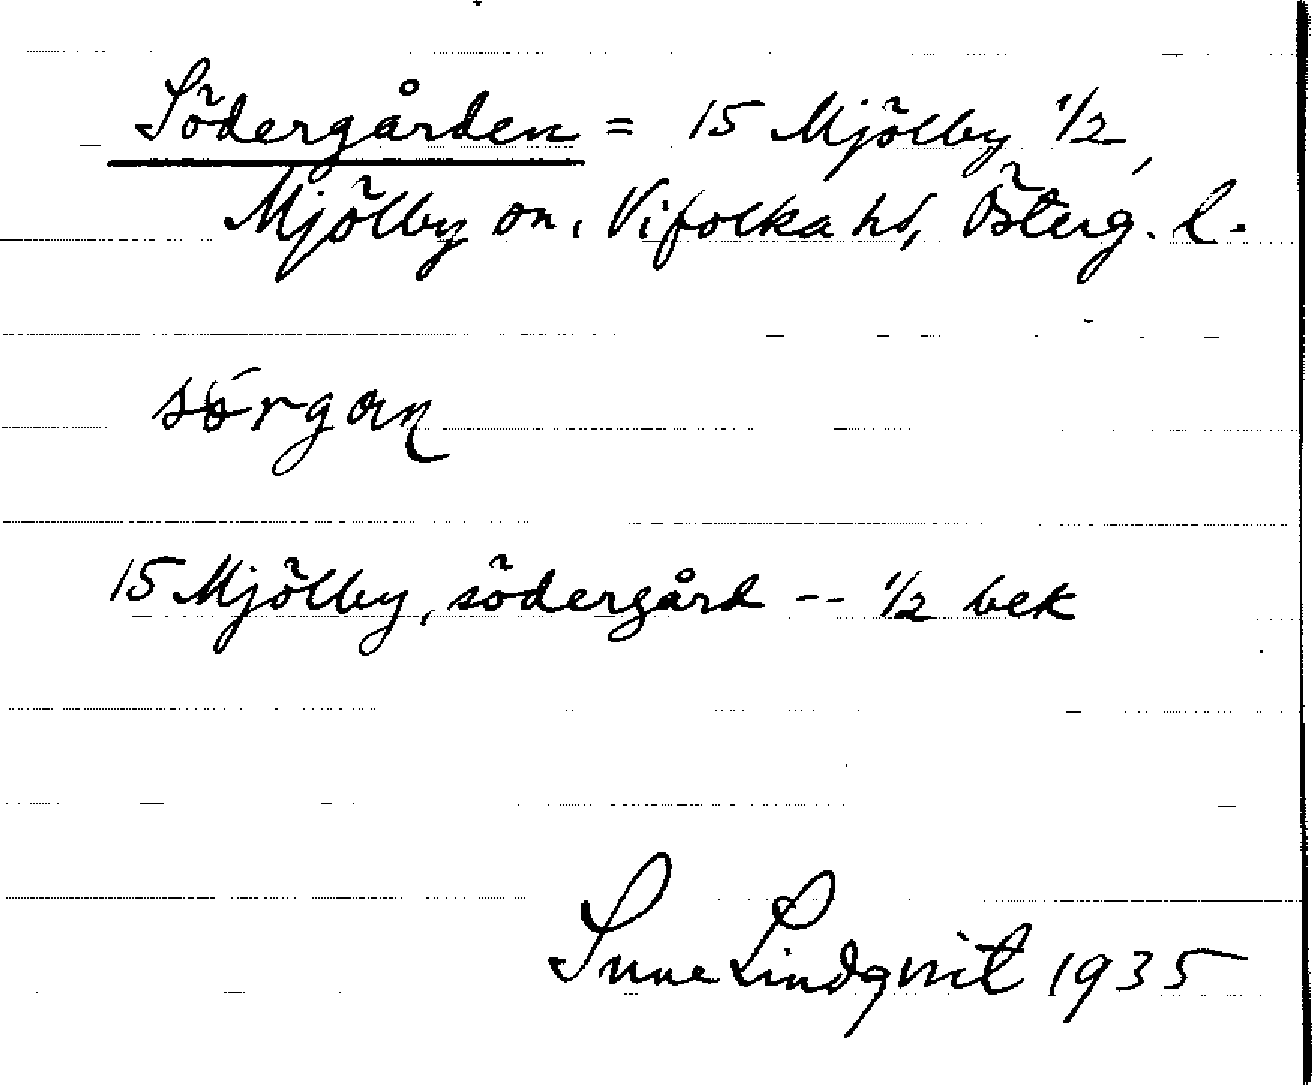 Södergården = 15 Mjölby 1/2,
Mjölby sn, Vifolka hd, Österg. l.
15 Mjölby, södergård -- 1/2 bek
Sune Lindqvist 1935